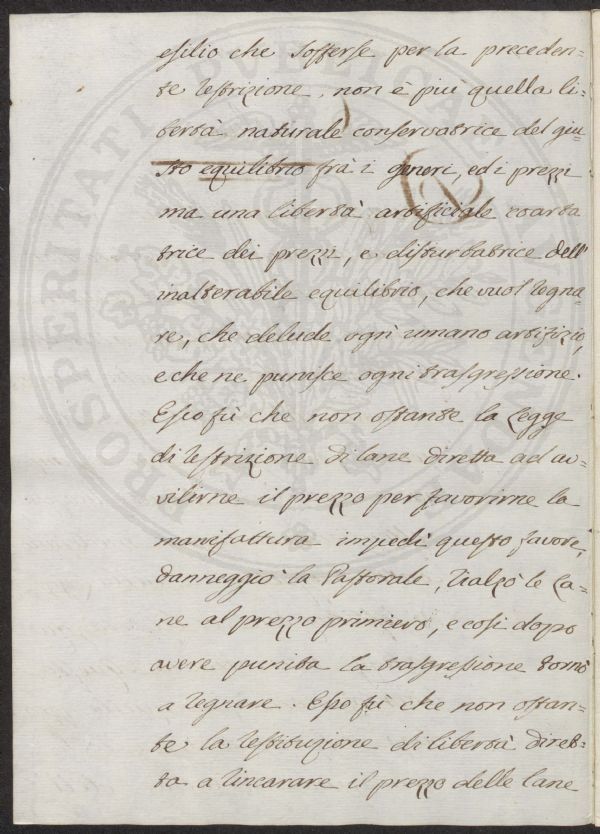 esilio che sofferse per la preceden=
te restrizione, non è più quella li=
bertà naturale conservatrice del giu=
sto equilibrio frà i generi, ed i prezzi
ma una libertà artificiale coarta
trice dei prezzi, e disturbatrice dell'
inalterabile equilibrio, che vuol regna=
re, che delude ogni umano artifizio,
e che ne punisce ogni trasgressione.
Esso fù che non ostante la Legge
di restrizione di lane diretta ad av=
vilirne il prezzo per favorirne la
manifattura impedì questo favore,
danneggiò la Pastorale, rialzò le La=
ne al prezzo primiero, e così dopo
avere punita la trasgressione tornò
a regnare. Esso fù che non ostan=
te la restituzione di libertà diret=
ta a rincarare il prezzo delle lane
PROSPERITATI PUBLICAE